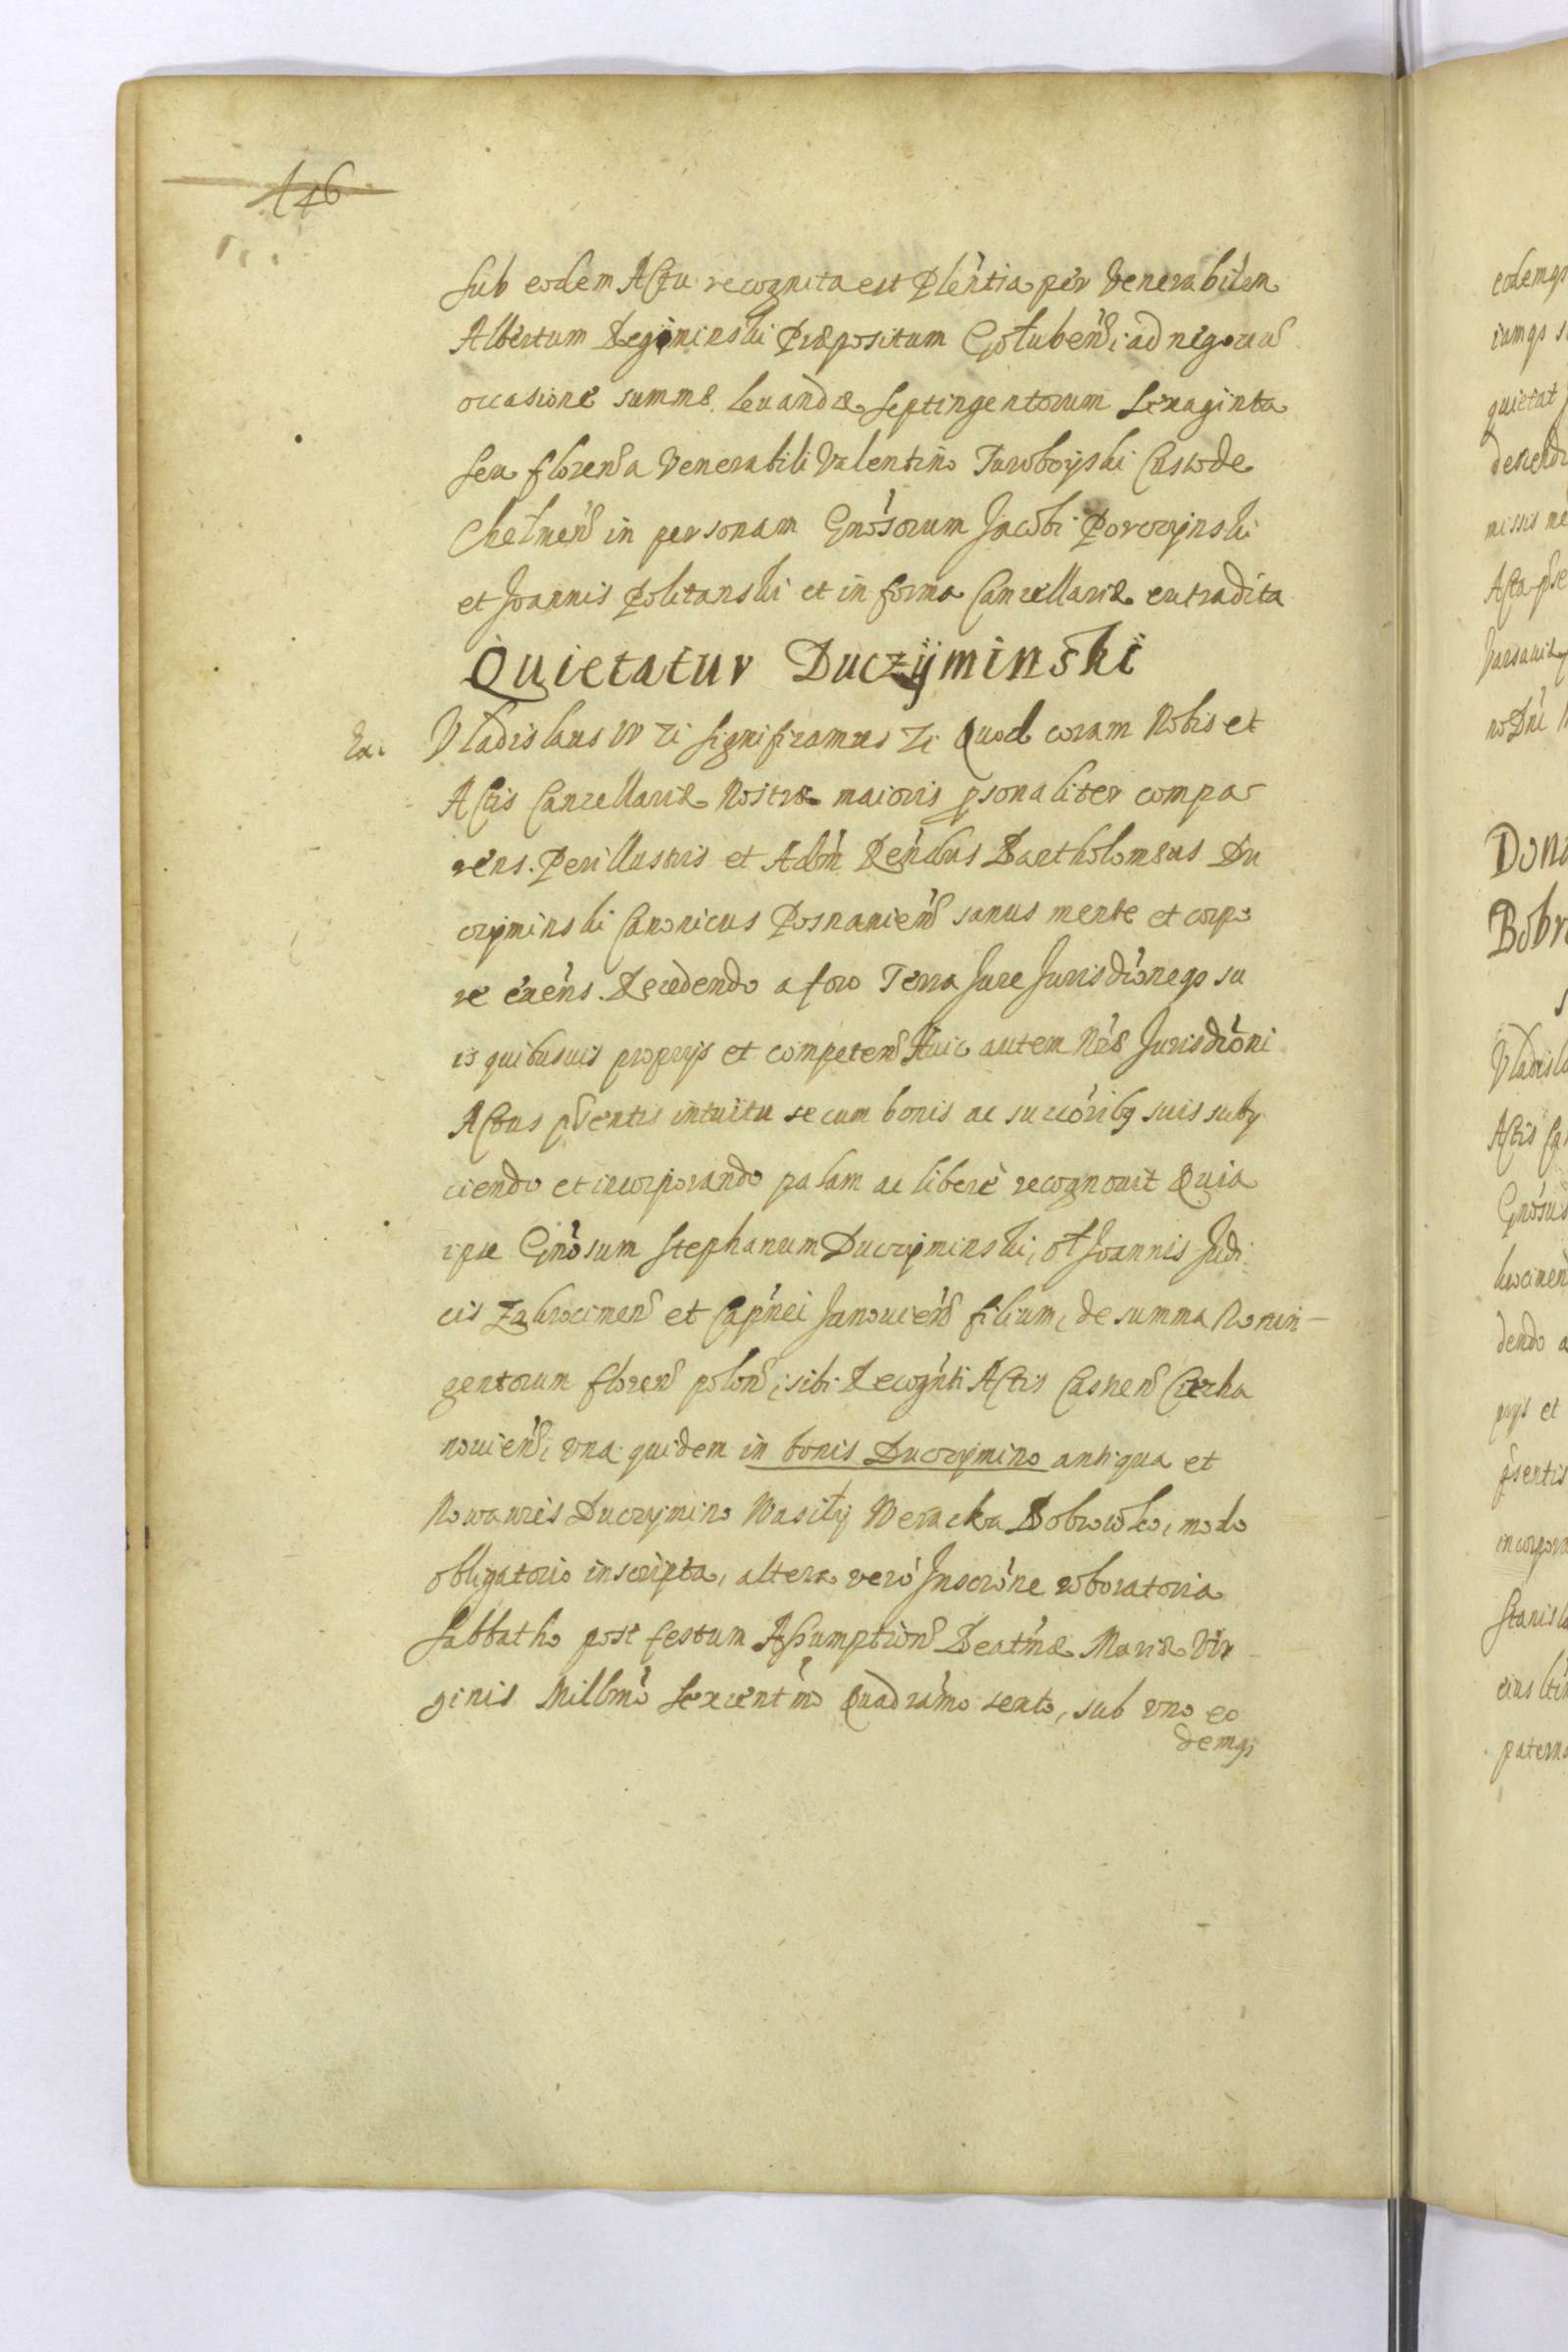 146
Sub eodem Actu recognita est Plentia per Venerabilem
Albertum Regiminski Præpositum Gołubens: ad negotiu
occasione summæ leuandæ Septingentorum Sexaginta
seu floren a Venerabili Valentino Turoboyski Custode
Chełmen in personam Gnosorum Jacobi Porczynski
et Joannis Politanski et in forma Cancellariæ extradita
Quietatur Duczÿminski
Ex: Vladislaus IV zc significamus zc Quod coram Nobis et
Actis Cancellariæ Nostræ maioris psonaliter compa
rens. Perillustris et Adm Rendus Bartholomæus Du
czyminski Canonicus Posnanien sanus mente et corpo
re exens. Recedendo a foro Terra Jure Jurisdioneqs su
is quibusuis proprijs et competen Huic autem Nræ Jurisdioni
Actus psentis intuitu se cum bonis ac succoribq suis subij
ciendo et incorporando palam ac liberè recognouit Quia
ipse Gnosum Stephanum Duczyminski, ol Joannis Judi
cis Zakrocimen et Capnei Janouien filium, de summa Nonin
gentorum floren polon, sibi Recognti Actis Castren Ciecha
nouien, vna quidem in bonis Duczymino antiqua et
Nowawies Duczymino Wasiły Weracka Bobrowko, modo
obligatorio inscripta, altera verò Inscrone roboratoria
Sabbatho post festum Assumption Beatmæ Mariæ Vir
ginis Millmo Sexcentmo Quadramo sexto, sub vno eo
demqs
eodemqs
quietat
missis ne
no Dni
Dona
Bobro
Vladisla
Actis Ca
Gnosus
dendo a
prys et
psentis
incorpora
Stanisla
paterno